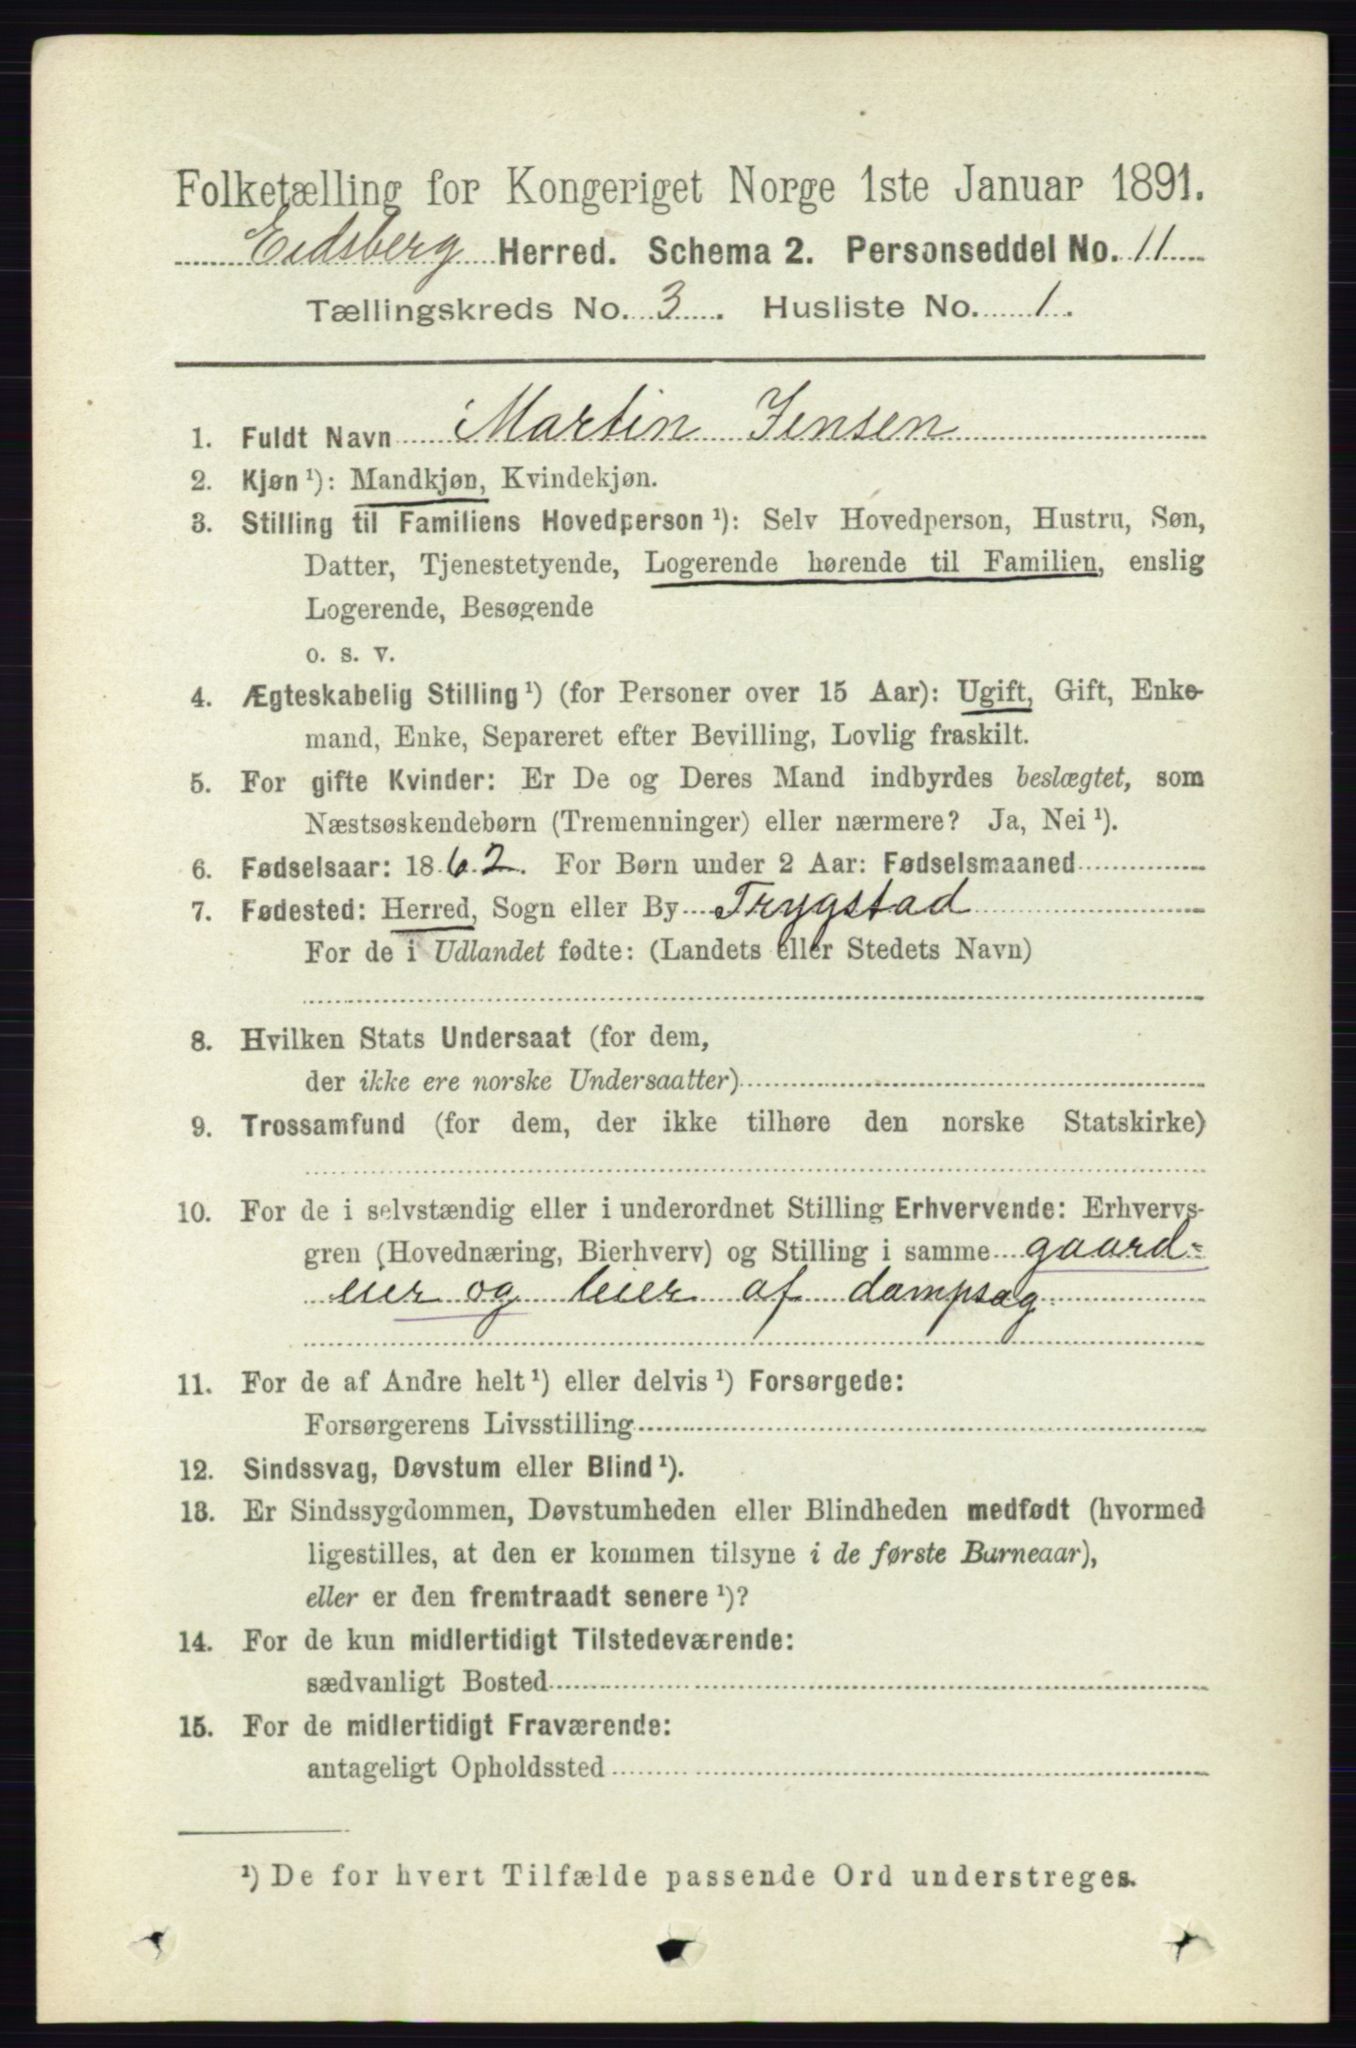 Folketælling for Kongeriget Norge 1ste Januar 1891.
Eidsberg Herred. Schema 2. Personseddel No. 11
Tællingskreds No. 3. Husliste No. 1.
1. Fuldt Navn Martin Jensen
2. Kjøn ¹): Mandkjøn, Kvindekjøn.
3. Stilling til Familiens Hovedperson ¹): Selv Hovedperson, Hustru, Søn,
Datter, Tjenestetyende, Logerende hørende til Familien, enslig
Logerende, Besøgende
o. s. v.
4. Ægteskabelig Stilling ¹) (for Personer over 15 Aar): Ugift, Gift, Enke-
mand, Enke, Separeret efter Bevilling, Lovlig fraskilt.
5. For gifte Kvinder: Er De og Deres Mand indbyrdes beslægtet, som
Næstsøskendebørn (Tremenninger) eller nærmere? Ja, Nei ¹).
6. Fødselsaar: 1862. For Børn under 2 Aar: Fødselsmaaned
7. Fødested: Herred, Sogn eller By Trygstad
For de i Udlandet fødte: (Landets eller Stedets Navn)
8. Hvilken Stats Undersaat (for dem,
der ikke ere norske Undersaatter)
9. Trossamfund (for dem, der ikke tilhøre den norske Statskirke)
10. For de i selvstændig eller i underordnet Stilling Erhvervende: Erhvervs-
gren (Hovednæring, Bierhverv) og Stilling i samme gaard-
eier og leier af dampsag
11. For de af Andre helt ¹) eller delvis ¹) Forsørgede:
Forsørgerens Livsstilling
12. Sindssvag, Døvstum eller Blind ¹).
13. Er Sindssygdommen, Døvstumheden eller Blindheden medfødt (hvormed
ligestilles, at den er kommen tilsyne i de første Barneaar),
eller er den fremtraadt senere ¹)?
14. For de kun midlertidigt Tilstedeværende:
sædvanligt Bosted
15. For de midlertidigt Fraværende:
antageligt Opholdssted
¹) De for hvert Tilfælde passende Ord understreges.